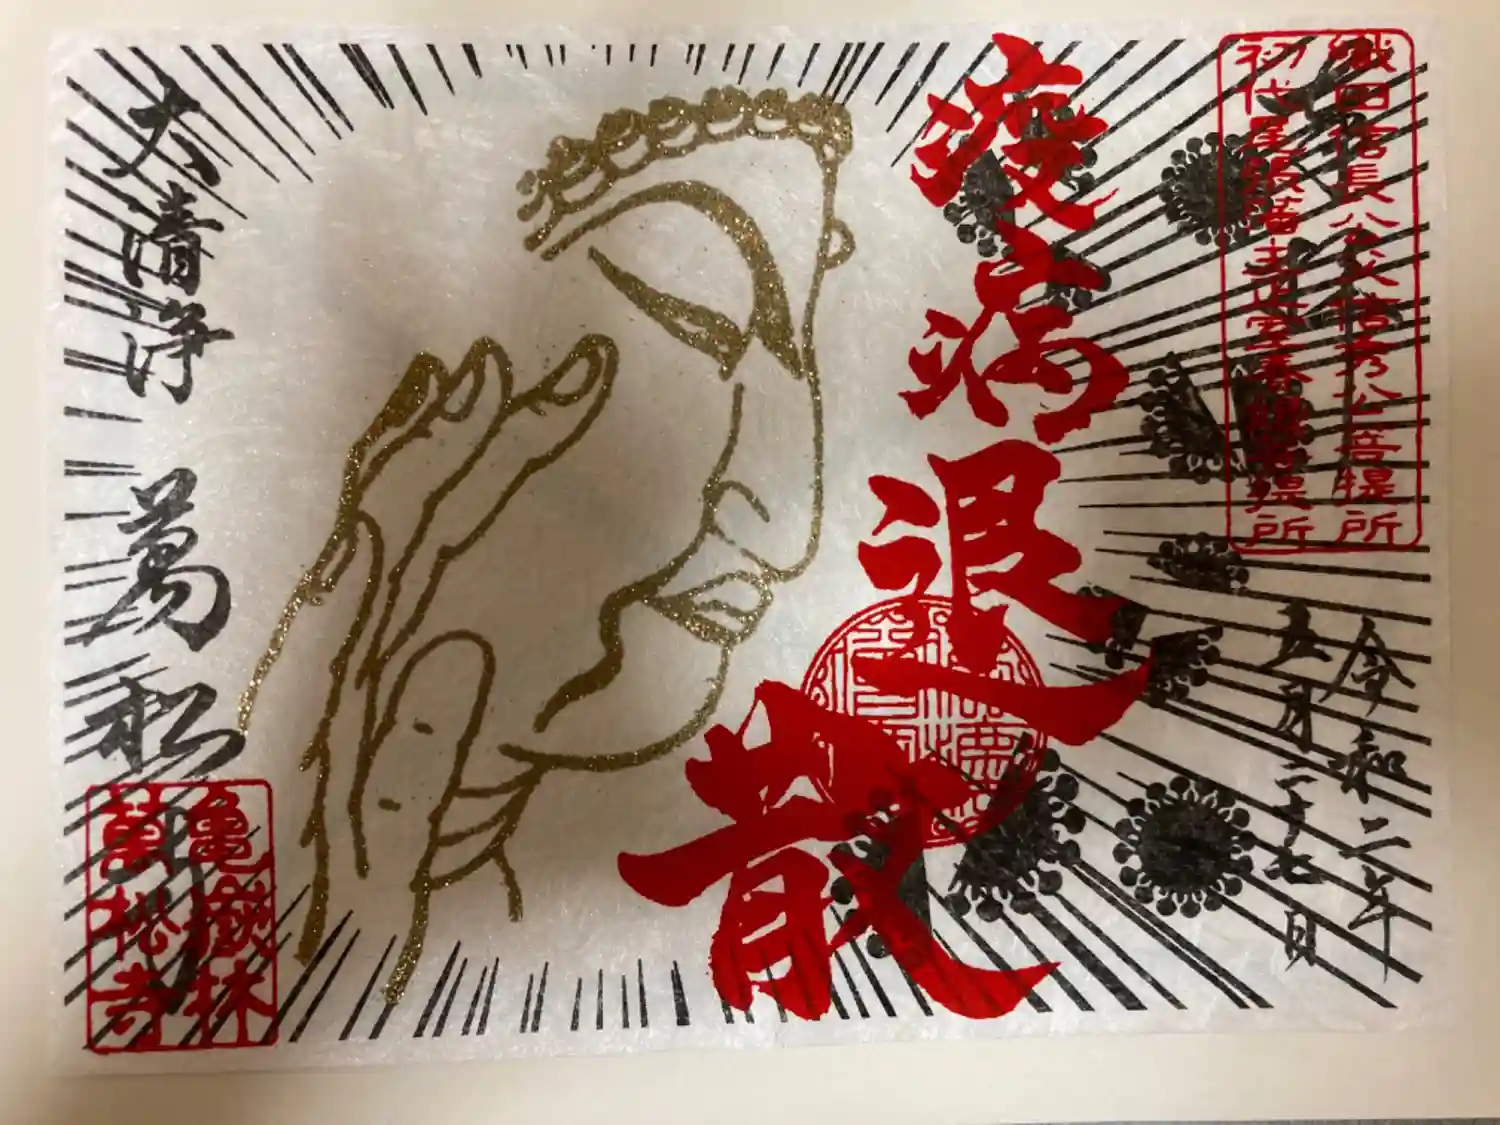 織田信長公父信秀公菩提所
初代尾張藩主義直室春姫菩提所
令和二年
五月二十七日
疫病退散
大清浄
萬松寺
亀嶽林
萬松寺